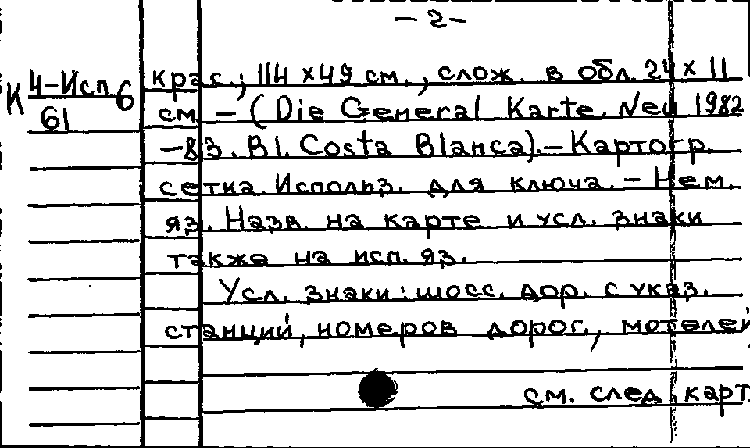 - 2 -
К 4-Исп 6
61
крас.; 114 x 49 см., слож. в обл. 24 x 11
см - (Die General Karte. Neu 1982
-83. Bl. Costa Blanca). - Картогр.
сетка. Использ. для ключа. - Нем.
яз. Назв. на карте и усл. знаки
также на исп. яз.
Усл. знаки: шосс. дор. с указ.
станций, номеров дорог., мотелей
см. след. карт.